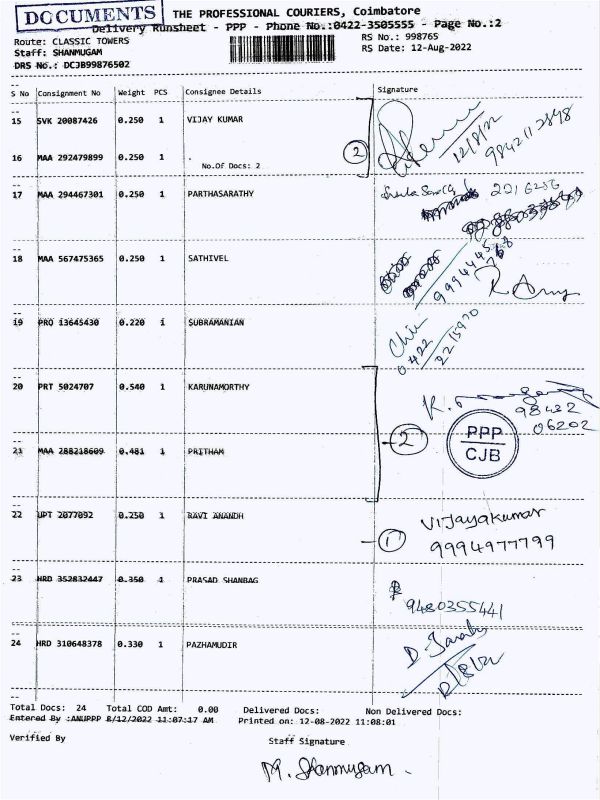 DOCUMENTS
THE PROFESSIONAL COURIERS, Coimbatore
Delivery Runsheet - PPP - Phone No.:0422-3505555 - Page No.:2
Route: CLASSIC TOWERS RS No.: 998765
Staff: SHANMUGAM RS Date: 12-Aug-2022
DRS No.: DCJB99876502
S No Consignment No Weight PCS Consignee Details Signature
15 SVK 20087426 0.250 1 VIJAY KUMAR
12/8/22
16 MAA 292479899 0.250 1 . 2
No.Of Docs: 2
17 MAA 294467301 0.250 1 PARTHASARATHY
2216256
18 MAA 567475365 0.250 1 SATHIVEL
19 PRO 13645430 0.220 1 SUBRAMANIAN
0422
2215970
20 PRT 5024707 0.540 1 KARUNAMORTHY
98432
06202
PPP
CJB
2
21 MAA 288218609 0.481 1 PRITHAM
22 UPT 2077092 0.250 1 RAVI ANANDH
Vijayakumar
1 9994977799
23 HRD 352832447 0.350 1 PRASAD SHANBAG
9480355441
24 HRD 310648378 0.330 1 PAZHAMUDIR
Total Docs: 24 Total COD Amt: 0.00 Delivered Docs: Non Delivered Docs:
Entered By :ANUPPP 8/12/2022 11:07:17 AM Printed on: 12-08-2022 11:08:01
Verified By Staff Signature
M. Shanmugam.